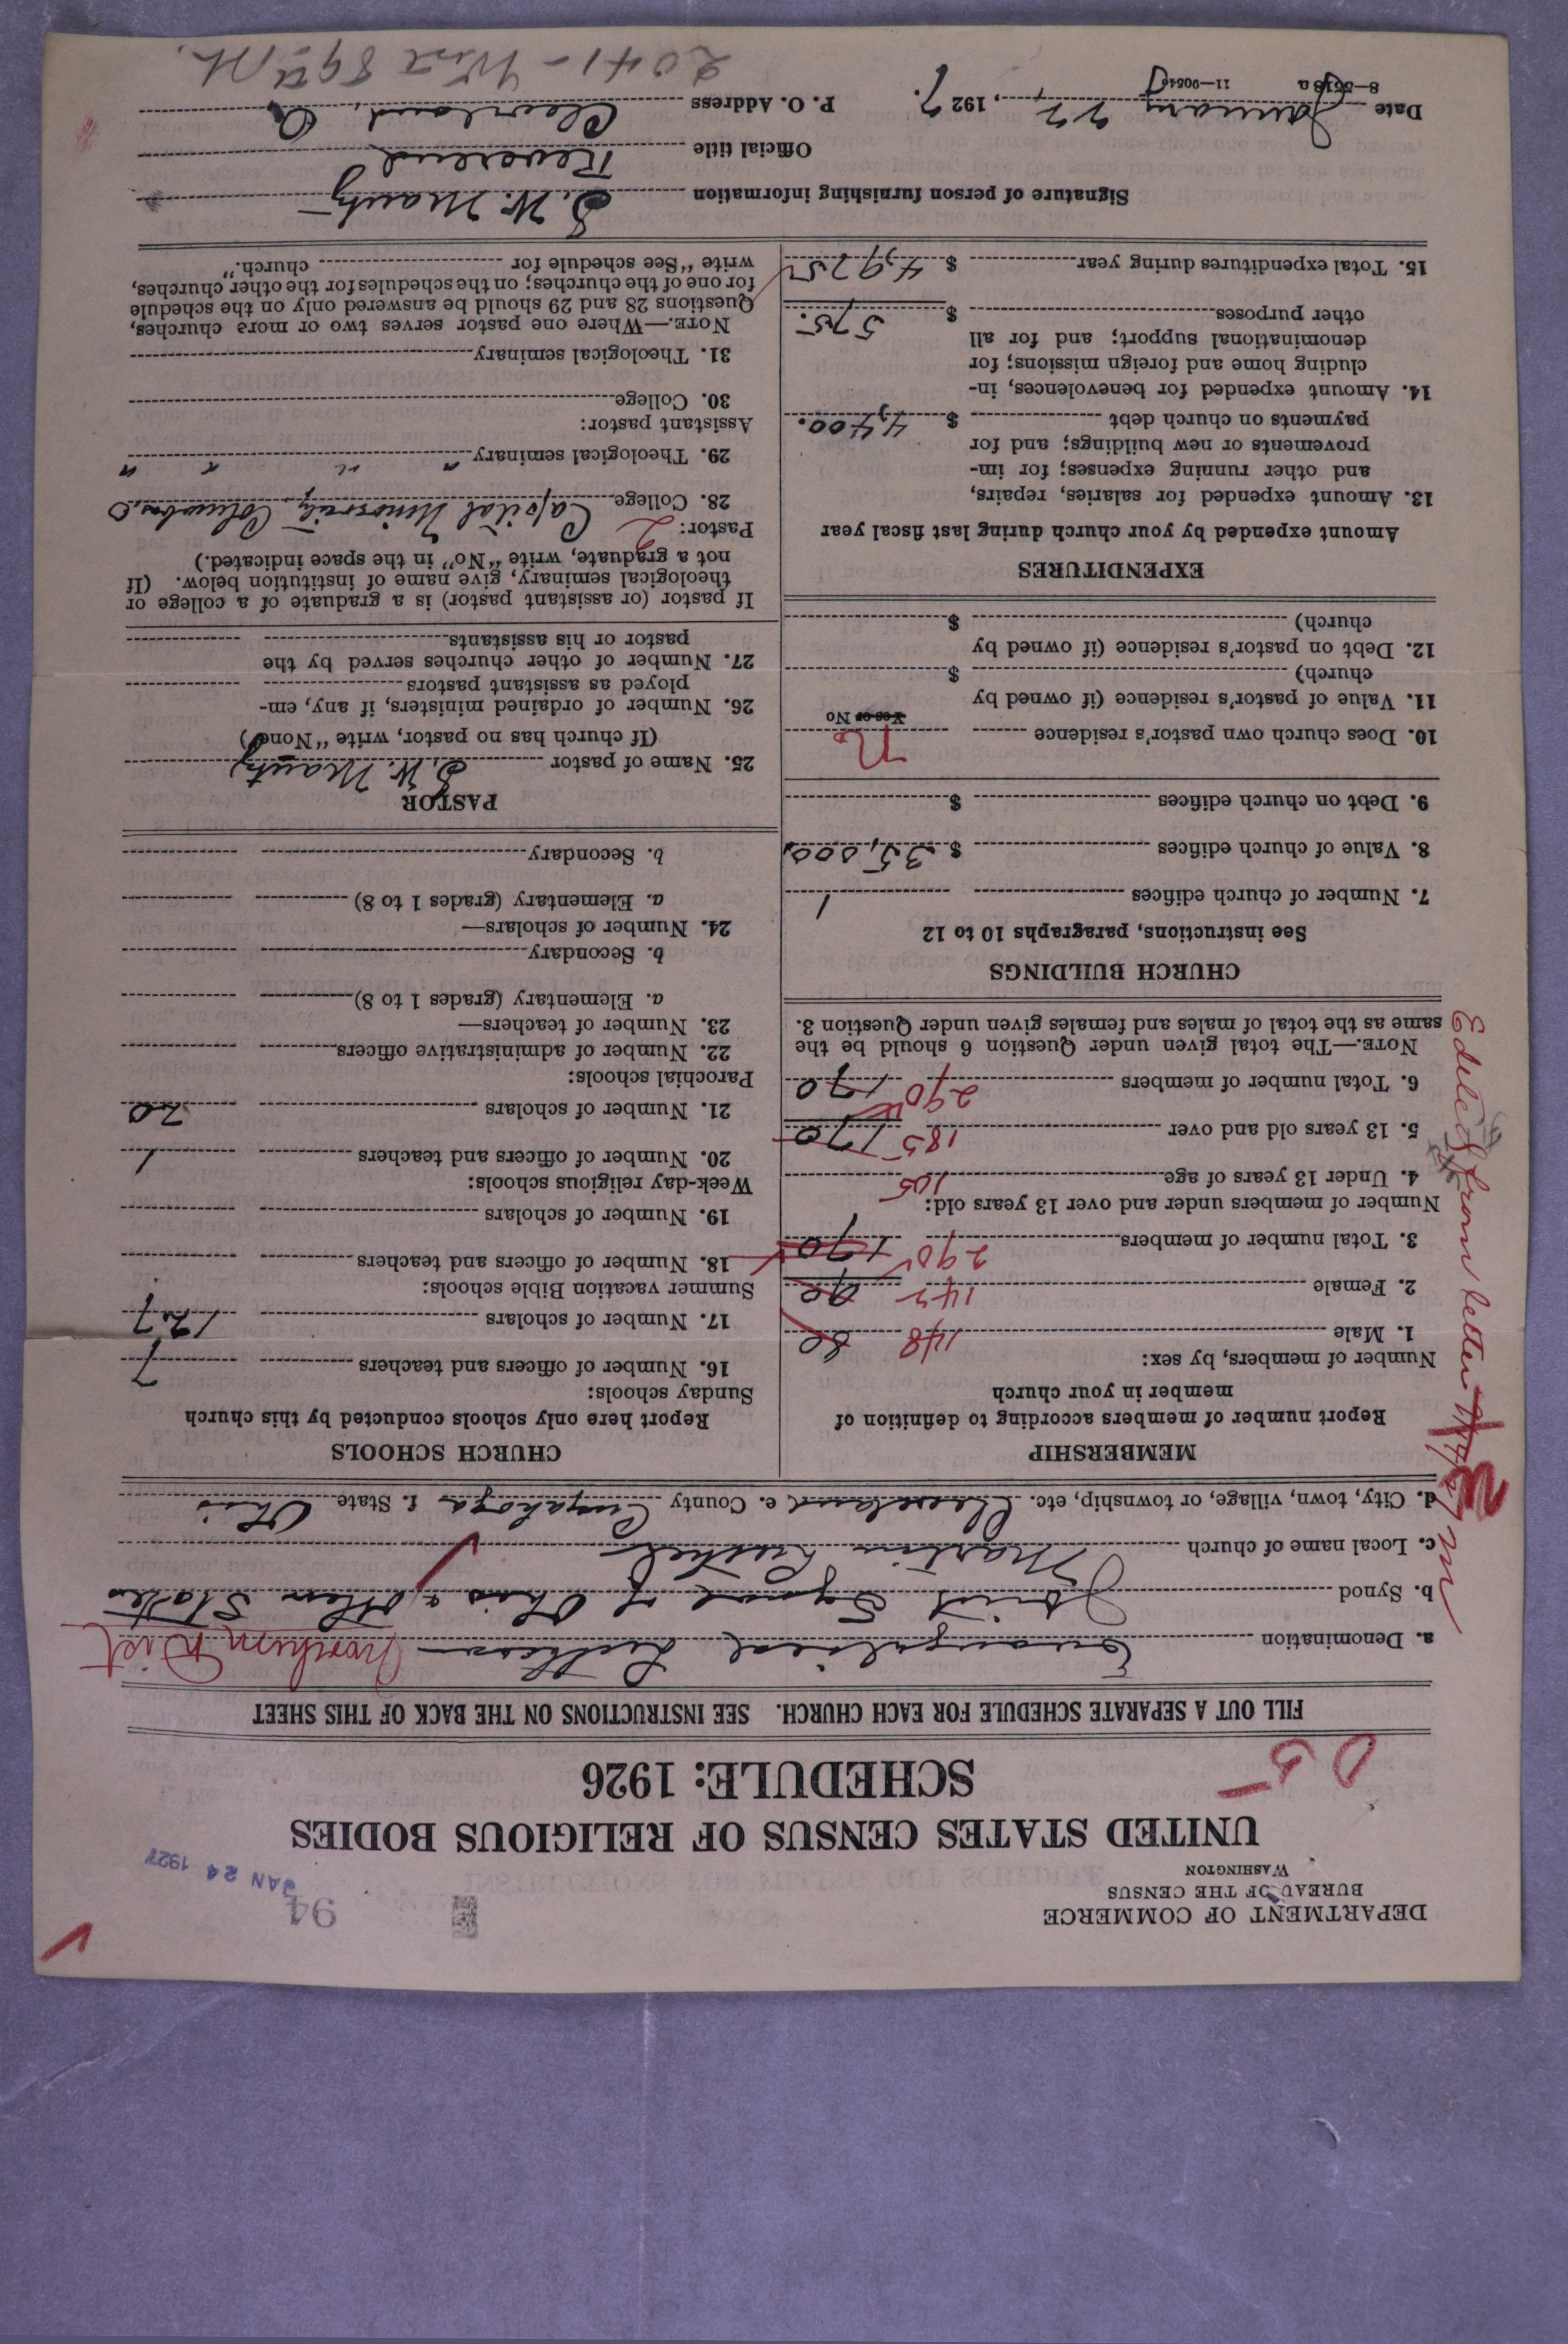 DEPARTMENT OF COMMERCE
BUREAU OF THE CENSUS
WASHINGTON
94
JAN 24 1927
UNITED STATES CENSUS OF RELIGIOUS BODIES
SCHEDULE: 1926
05
FILL OUT A SEPARATE SCHEDULE FOR EACH CHURCH. SEE INSTRUCTIONS ON THE BACK OF THIS SHEET
a. Denomination Evangelical Lutheran Northern Dist
b. Synod Joint Synod of Ohio & Other States
c. Local name of church Martin Luther
d. City, town, village, or township, etc. Cleveland e. County Cuyahoga f. State Ohio
Edited from letter
MEMBERSHIP
Report number of members according to definition of
member in your church
Number of members, by sex:
1. Male 148 80
2. Female 142 90
3. Total number of members 290 170
Number of members under and over 13 years old:
4. Under 13 years of age 105
5. 13 years old and over 185 170
6. Total number of members 290 170
NOTE.—The total given under Question 6 should be the
same as the total of males and females given under Question 3.
CHURCH BUILDINGS
See instructions, paragraphs 10 to 12
7. Number of church edifices 1
8. Value of church edifices $ 35,000
9. Debt on church edifices $
10. Does church own pastor's residence
Yes or No
11. Value of pastor's residence (if owned by
church) $
12. Debt on pastor's residence (if owned by
church) $
EXPENDITURES
Amount expended by your church during last fiscal year
13. Amount expended for salaries, repairs,
and other running expenses; for im-
provements or new buildings; and for
payments on church debt $ 4,400.
14. Amount expended for benevolences, in-
cluding home and foreign missions; for
denominational support; and for all
other purposes $ 575.
15. Total expenditures during year $ 4,975
CHURCH SCHOOLS
Report here only schools conducted by this church
Sunday schools:
16. Number of officers and teachers 7
17. Number of scholars 127
Summer vacation Bible schools:
18. Number of officers and teachers
19. Number of scholars
Week-day religious schools:
20. Number of officers and teachers 1
21. Number of scholars 20
Parochial schools:
22. Number of administrative officers
23. Number of teachers—
a. Elementary (grades 1 to 8)
b. Secondary
24. Number of scholars—
a. Elementary (grades 1 to 8)
b. Secondary
PASTOR
25. Name of pastor S. W. Mautz
(If church has no pastor, write "None")
26. Number of ordained ministers, if any, em-
ployed as assistant pastors
27. Number of other churches served by the
pastor or his assistants
If pastor (or assistant pastor) is a graduate of a college or
theological seminary, give name of institution below. (If
not a graduate, write "No" in the space indicated.)
Pastor: 2
28. College Capital University, Columbus, O
29. Theological seminary " " " "
Assistant pastor:
30. College
31. Theological seminary
NOTE.—Where one pastor serves two or more churches,
Questions 28 and 29 should be answered only on the schedule
for one of the churches; on the schedules for the other churches,
write "See schedule for church."
Signature of person furnishing information S. W. Mautz
Official title Reverend
Date January 22, 1927. P. O. Address Cleveland, O
8—5518a 11—9054
2041 - West 89th St.